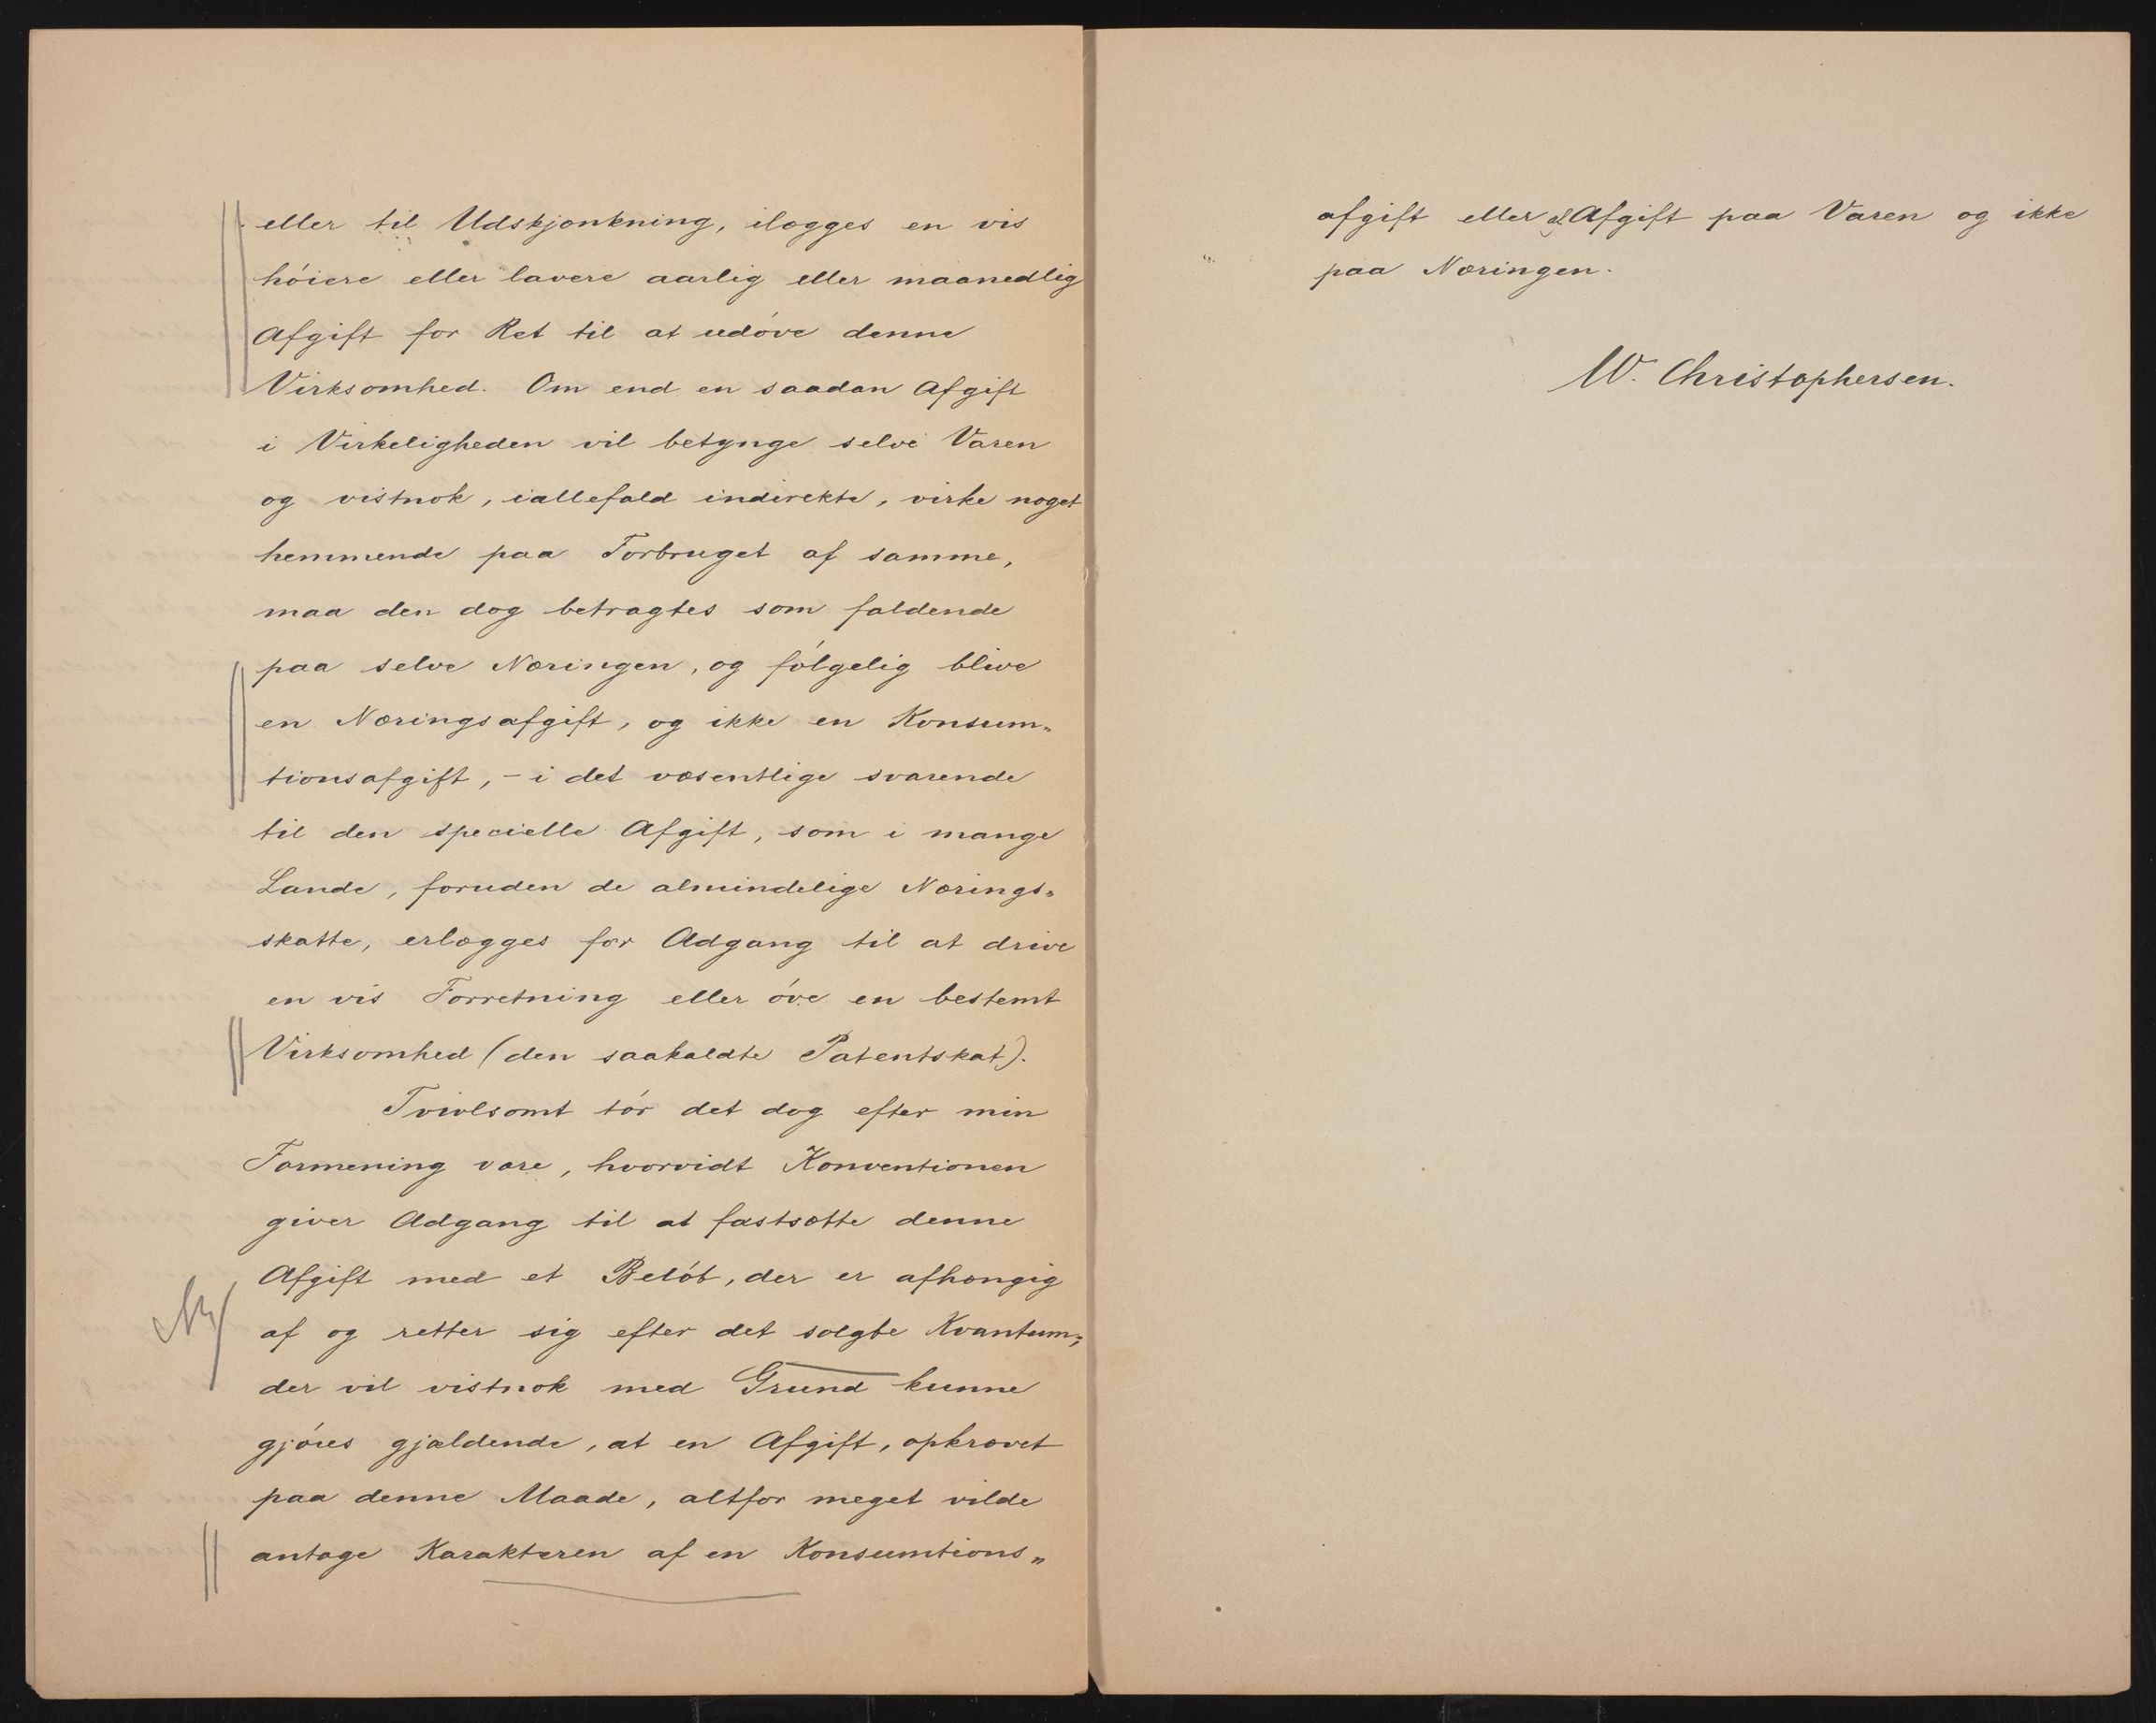 eller til Udskjænkning, ilægges en vis
høiere eller lavere aarlig eller maanedlig
Afgift for Ret til at udøve denne
Virksomhed. Om end en saadan Afgift
i Virkeligheden vil betynge selve Varen
og vistnok, iallefald indirekte, virke noget
hemmende paa Forbruget af samme,
maa den dog betragtes som faldende
paa selve Næringen, og følgelig blive
en Næringsafgift, og ikke en Konsum„
tionsafgift, – i det væsentlige svarende
til den specielle Afgift, som i mange
Lande, foruden de almindelige Nærings„
skatte, erlægges for Adgang til at drive
en vis Forretning eller øve en bestemt
Virksomhed (den saakaldte Patentskat).
Tvivlsomt tør det dog efter min
Formening være, hvorvidt Konventionen
giver Adgang til at fastsætte denne
Afgift med et Beløb, der er afhængig
af og retter sig efter det solgte Kvantum;
der vil vistnok med Grund kunne
gjøres gjældende, at en Afgift, opkrævet
paa denne Maade, altfor meget vilde
antage Karakteren af en Konsumtions„
afgift eller Afgift paa Varen og ikke
paa Næringen.
W. Christophersen.